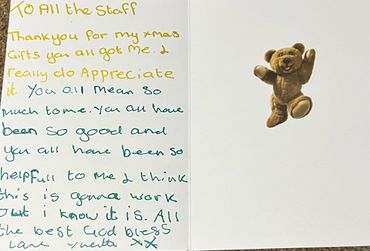 TO All the Staff
Thankyou for my xmas
Gifts you all got me. I
really do Appreciate
it. You all mean so
much to me. You all have
been so good and
you all have been so
helpfull to me I think
this is gonna work
but i know it is. All
the best God bless
xx